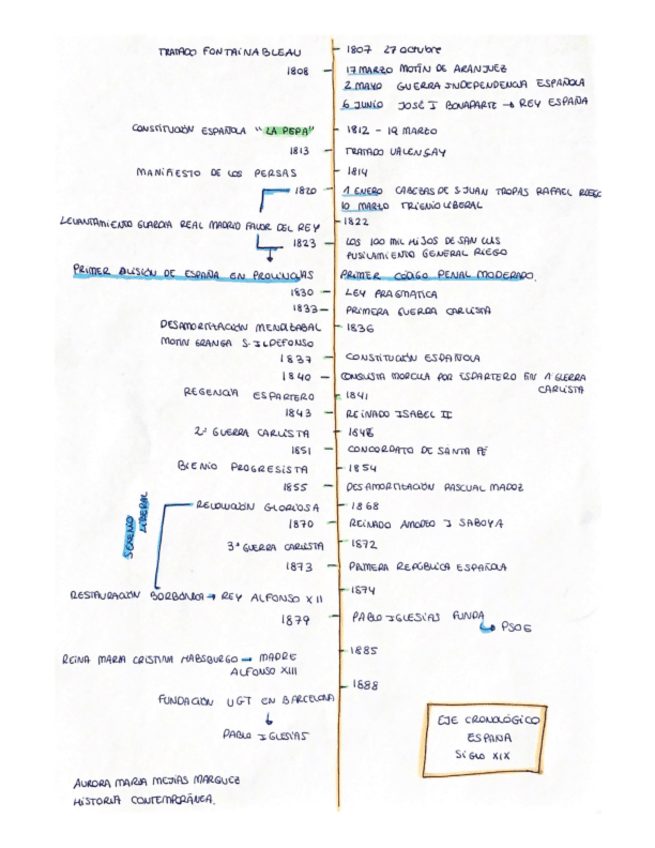 TRATADO FONTAINABLEAU 1807 27 octubre
1808 17 MARZO MOTÍN DE ARANJUEZ
2 MAYO GUERRA INDEPENDENCIA ESPAÑOLA
6 JUNIO JOSÉ I BONAPARTE → REY ESPAÑA
CONSTITUCIÓN ESPAÑOLA "LA PEPA" 1812 - 19 MARZO
1813 TRATADO VALENÇAY
MANIFIESTO DE LOS PERSAS 1814
1820 1 ENERO CABEZAS DE S.JUAN TROPAS RAFAEL RIEGO
10 MARZO TRIENIO LIBERAL
LEVANTAMIENTO GUARDIA REAL MADRID FAVOR DEL REY 1822
1823 LOS 100 MIL HIJOS DE SAN LUIS
FUSILAMIENTO GENERAL RIEGO
PRIMER DIVISIÓN DE ESPAÑA EN PROVINCIAS PRIMER CÓDIGO PENAL MODERADO.
1830 LEY PRAGMATICA
1833 PRIMERA GUERRA CARLISTA
DESAMORTIZACIÓN MENDIZABAL 1836
MOTIN GRANJA S.ILDEFONSO
1837 CONSTITUCIÓN ESPAÑOLA
1840 CONQUISTA MORELLA POR ESPARTERO EN 1ª GUERRA
CARLISTA
REGENCIA ESPARTERO 1841
1843 REINADO ISABEL II
2ª GUERRA CARLISTA 1846
1851 CONCORDATO DE SANTA FÉ
BIENIO PROGRESISTA 1854
1855 DESAMORTIZACIÓN PASCUAL MADOZ
SEXENIO LIBERAL
REVOLUCIÓN GLORIOSA 1868
1870 REINADO AMADEO I SABOYA
3ª GUERRA CARLISTA 1872
1873 PRIMERA REPÚBLICA ESPAÑOLA
1874
RESTAURACIÓN BORBÓNICA → REY ALFONSO XII
1879 PABLO IGLESIAS FUNDA
PSOE
1885
REINA MARIA CRISTINA HABSBURGO → MADRE
ALFONSO XIII
1888
FUNDACIÓN UGT EN BARCELONA
PABLO IGLESIAS
EJE CRONOLÓGICO
ESPAÑA
SIGLO XIX
AURORA MARIA MEJIAS MARQUEZ
HISTORIA CONTEMPORÁNEA.